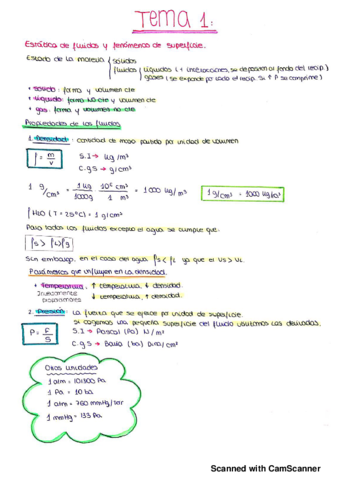 Tema 1:
Estática de fluidos y fenómenos de superficie.
Estado de la materia
sólidos
fluidos
líquidos (+ interacciones, se deposita al fondo del recip.)
gases (se expande por todo el recip. Si ↑ P se comprime)
• sólido: forma y volumen cte
• líquido: forma no cte y volumen cte
• gas: forma y volumen no cte.
Propiedades de los fluidos
1. Densidad: cantidad de masa partido por unidad de volumen
ρ = m/v
S.I → kg/m³
c.g.s → g/cm³
1 g/cm³ = 1 kg/1000g · 10⁶ cm³/1 m³ = 1000 kg/m³
1 g/cm³ = 1000 kg/m³
ρH₂O (T=25ºC) = 1 g/cm³
Para todos los fluidos excepto el agua se cumple que:
ρs > ρl > ρg
Sin embargo, en el caso del agua ρs < ρL ya que el Vs > VL.
Parámetros que influyen en la densidad.
• Temperatura: ↑ temperatura, ↓ densidad.
Inversamente proporcionales
↓ temperatura, ↑ densidad.
2. Presión: La fuerza que se ejerce por unidad de superficie.
Si cogemos una pequeña superficie del fluido usamos las derivadas.
P = F/S
S.I → Pascal (Pa) N/m²
c.g.s → Baria (ba) Dina/cm²
Otras unidades
1 atm = 101300 Pa
1 Pa = 10 ba
1 atm = 760 mmHg/tor
1 mmHg = 133 Pa
Scanned with CamScanner